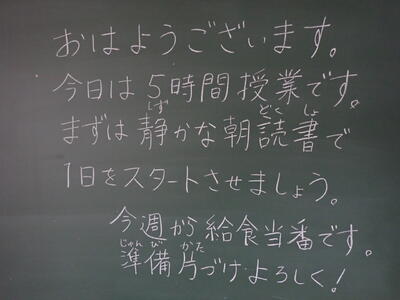 おはようございます。
今日は5時間授業です。
まずは静かな朝読書で
1日をスタートさせましょう。
今週から給食当番です。
準備片づけよろしく!
しず
どくしょ
じゅんび
かた